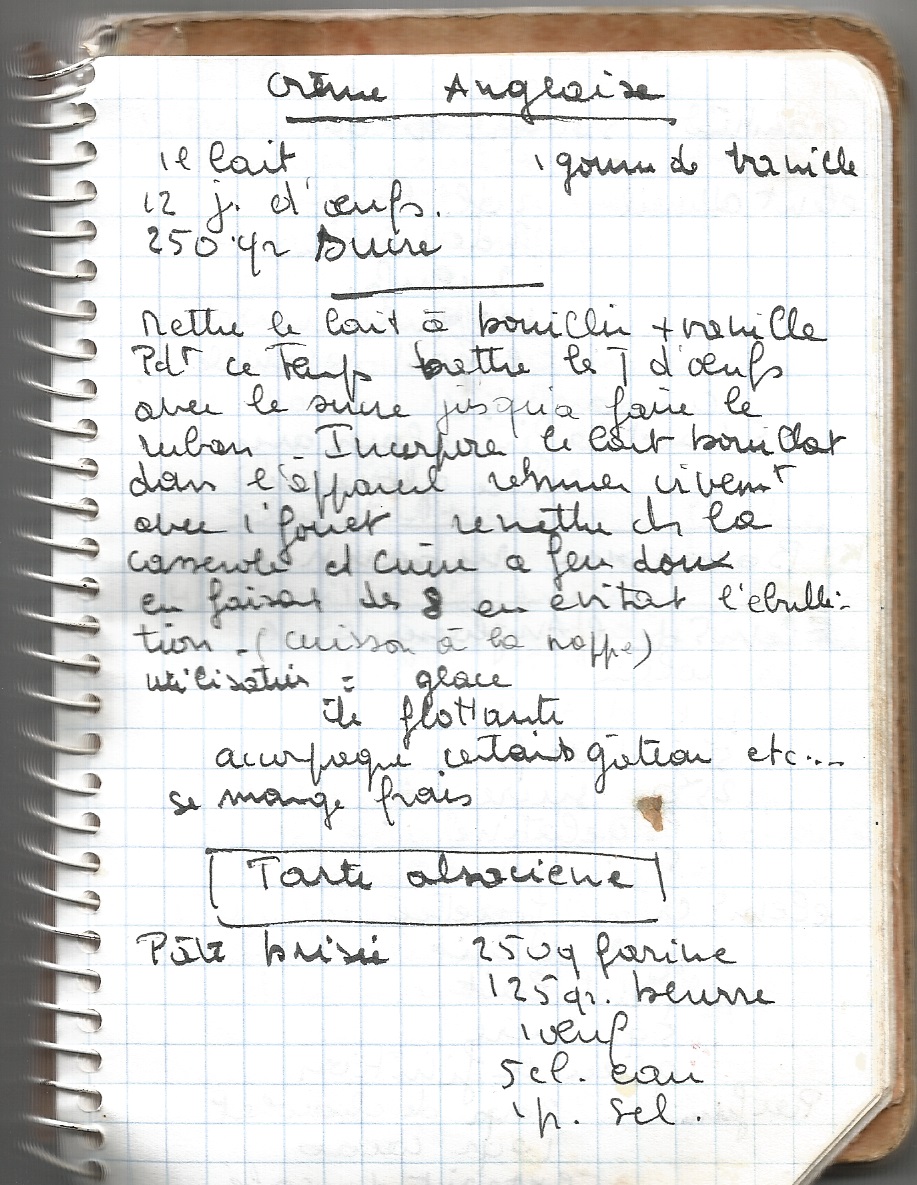 Crème Anglaise
1l lait 1 gousse de vanille
12 j. d'œufs.
250 gr sucre
Mettre le lait à bouillir + vanille
Pdt ce Temps battre le J d'œufs
avec le sucre jusqu'a faire le
ruban - Incorporer le lait bouillat
dans l'appareil remuer vivemt
avec 1 fouet remettre ds la
casserole et cuire a feu doux
en faisant des 8 en évitat l'ebulli-
tion - (cuisson à la nappe)
utilisation = glace
ile flottante
accompagne certains gâteau etc...
se mange frais
Tarte alsacienne
Pâte brisée 250g farine
125 gr. beurre
1 œuf
5 cl. eau
1 p. sel.